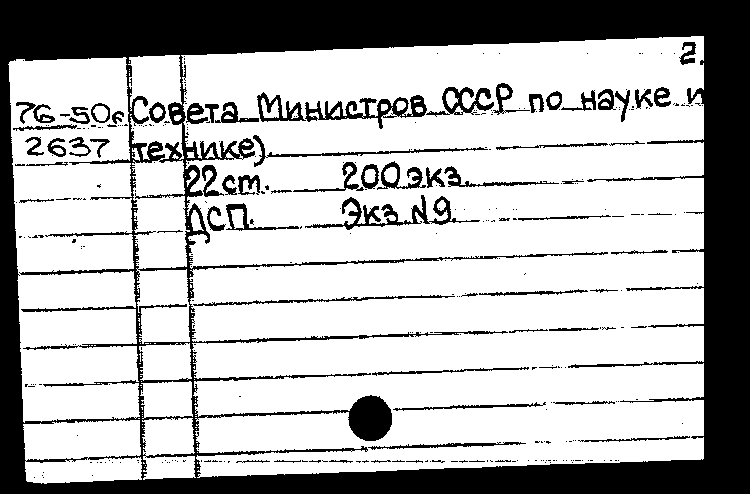 2.
76-50с Совета Министров СССР по науке и
2637 технике).
22 ст. 200 экз.
ДСП. Экз. N9.